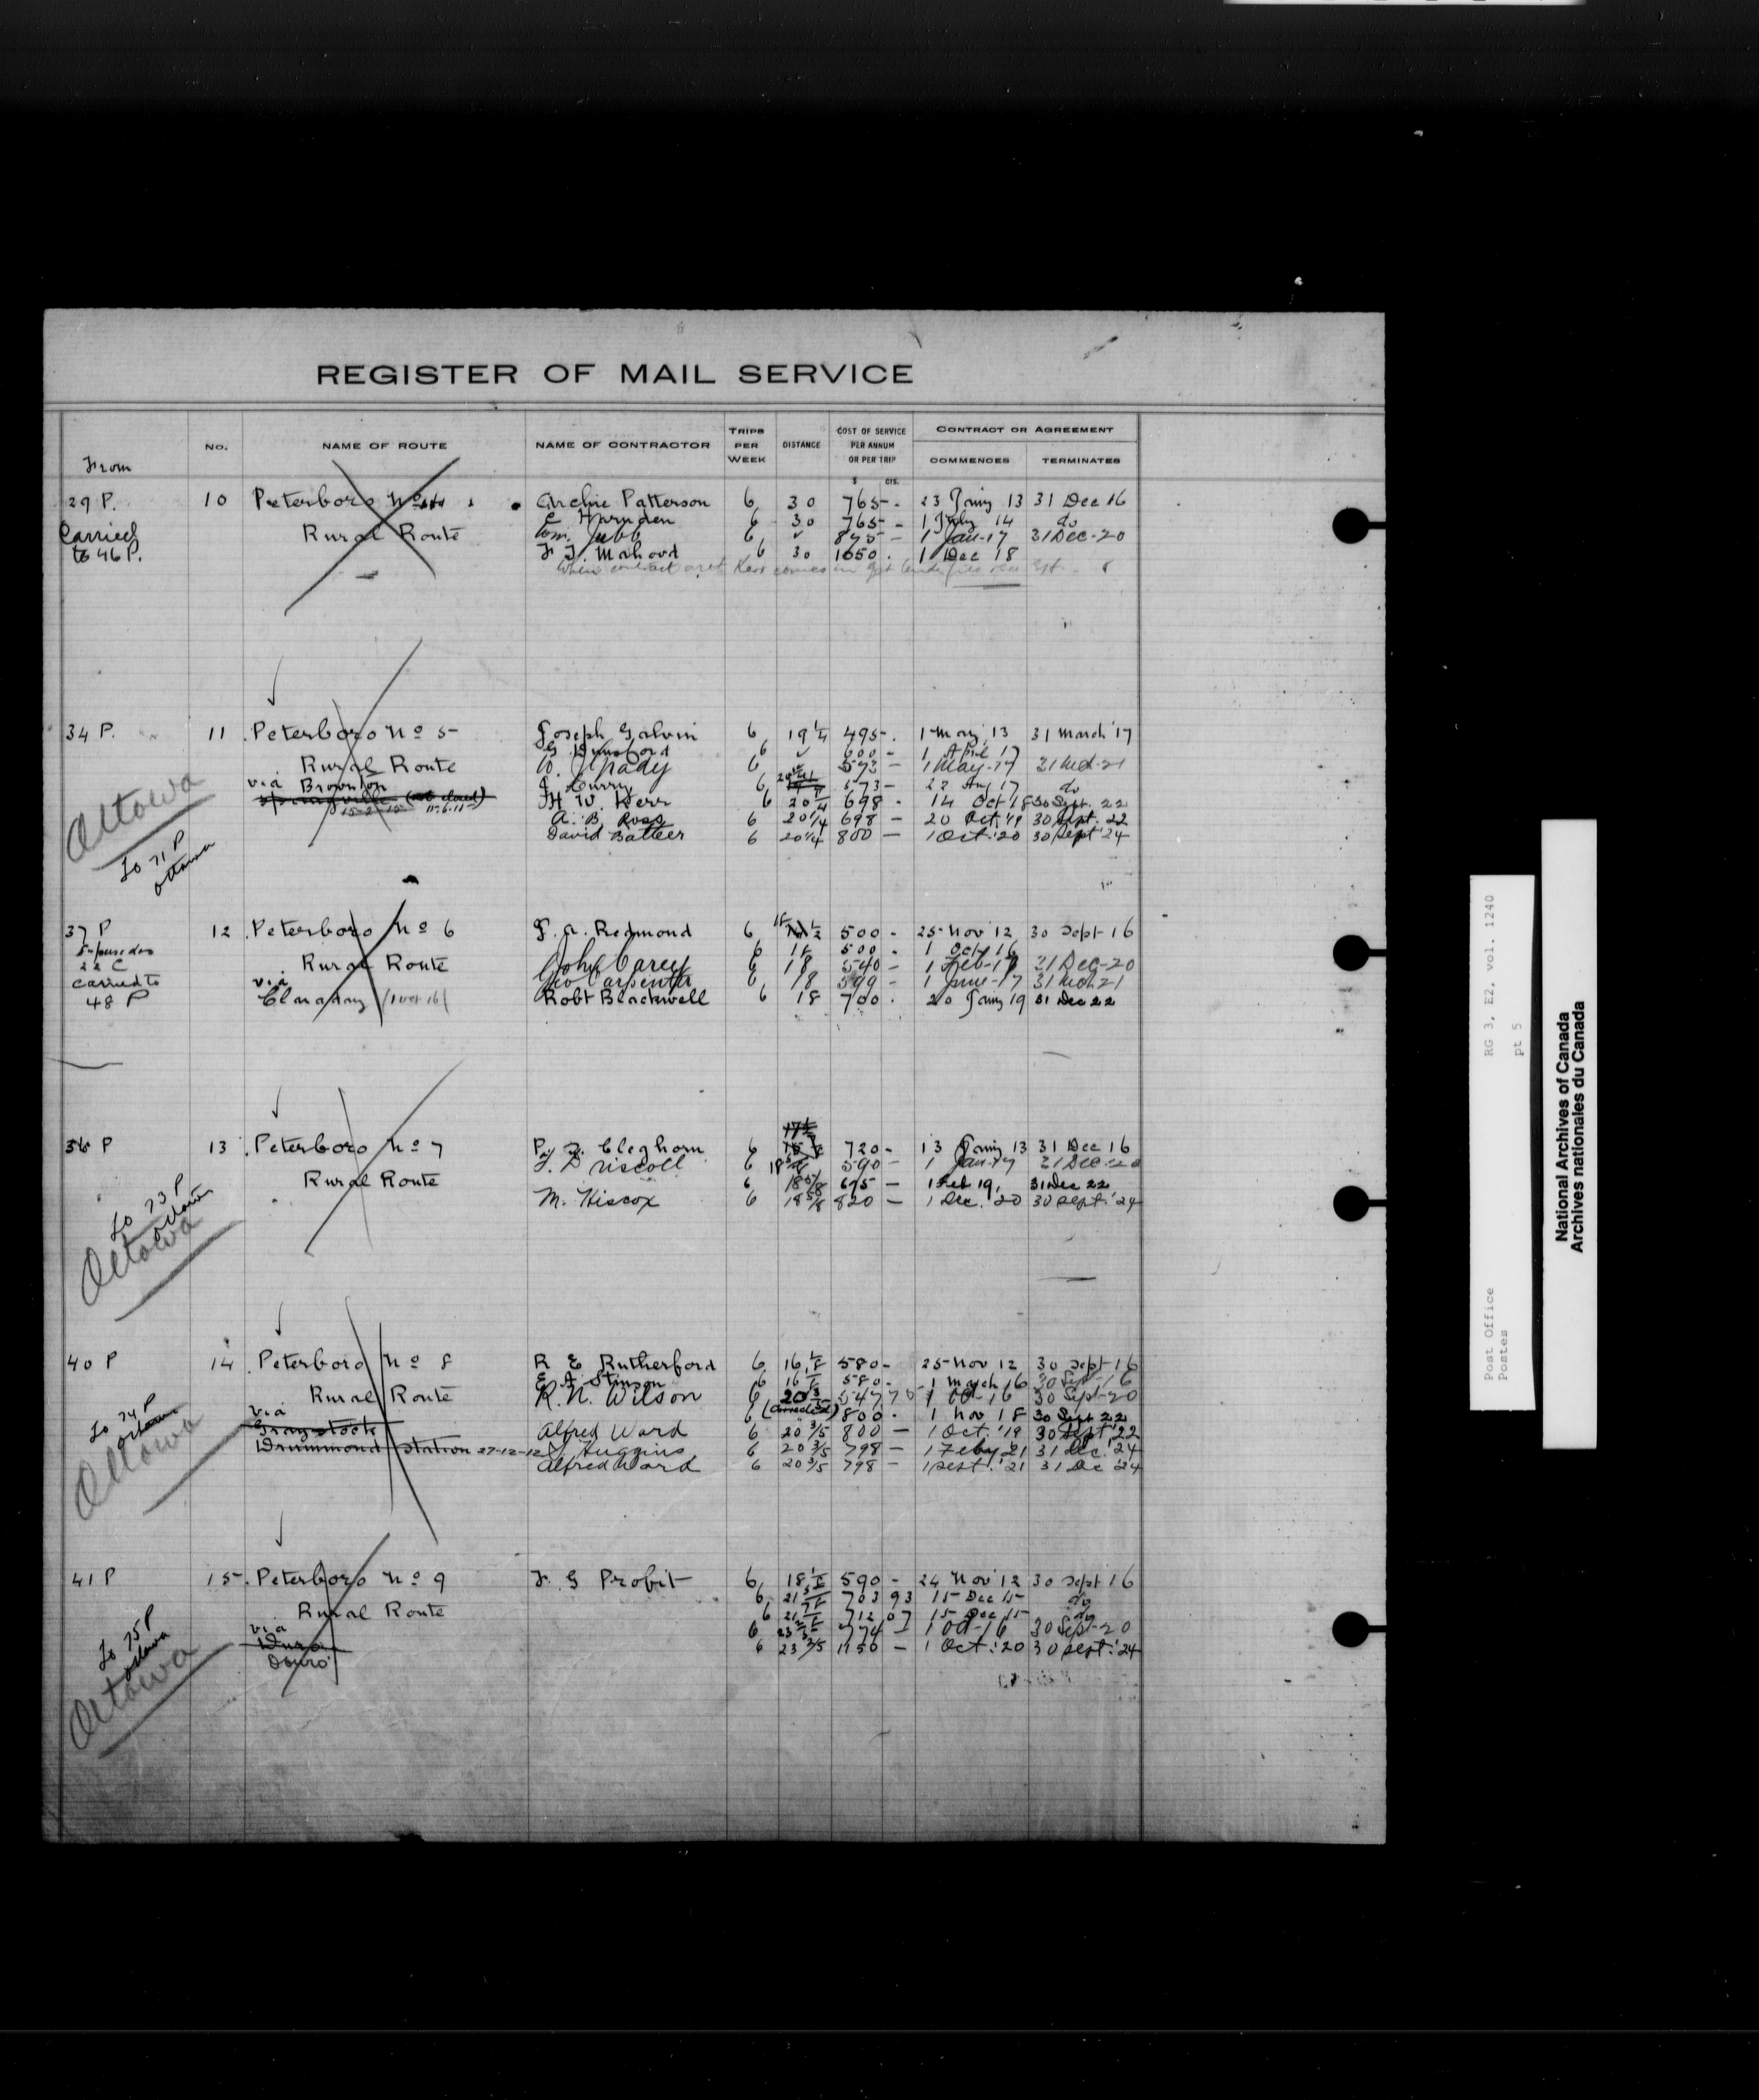 REGISTER OF MAIL SERVICE
From No. NAME OF ROUTE NAME OF CONTRACTOR TRIPS PER WEEK DISTANCE COST OF SERVICE PER ANNUM OR PER TRIP CONTRACT OR AGREEMENT
COMMENCES TERMINATES
$ CTS.
29 P. 10 Peterboro No Archie Patterson 6 30 765 - 23 Jany 13 31 Dec 16
E Harnden 6 30 765 - 1 July 14 do
Carried Rural Route Wm. Jebb 6 ✓ 875 - 1 Jan-17 31 Dec-20
to 46 P. F. J. Mahood 6 30 1050 . 1 Dec 18
34 P. 11 Peterboro No 5 Joseph Galvin 6 19 1/4 495 . 1 May 13 31 March '17
G Dunsford 6 ✓ 600 - 1 April 17
Rural Route W. J. Grady 6 573 - 1 May-17 31 Mch-21
via Brownton J. Curry 6 573 - 22 Aug 17 do
Springville (not closed) H W. Kerr 6 20 1/4 698 . 14 Oct 18 30 Sept. 22
15-2-15 11.6.11
A. B. Ross 6 20 1/4 698 - 20 Oct. '19 30 Sept. 22
David Batter 6 20 1/4 800 - 1 Oct. '20 30 Sept '24
Ottawa
To 71 P
Ottawa
37 P 12 Peterboro No 6 J. A. Redmond 6 18 500 - 25 Nov 12 30 Sept 16
6 18 500 . 1 Oct 16
22 C Rural Route John Carey 6 18 540 - 1 Feb-17 31 Dec-20
carried to via Geo Carpenter 6 18 599 - 1 June-17 31 Mch. 21
48 P (1 Oct 16) Robt Blackwell 6 18 700 . 20 Jany 19 31 Dec 22
36 P 13 Peterboro No 7 Cleghorn 6 720 - 13 Jany 13 31 Dec 16
J. Driscoll 6 18 5/8 590 - 1 Jan-17 31 Dec-20
Rural Route 6 18 5/8 695 - 1 Feb 19, 31 Dec 22
M. Hiscox 6 18 5/8 820 - 1 Dec. '20 30 Sept. '24
To 73 P
Ottawa
Ottawa
40 P 14 Peterboro No 8 R E Rutherford 6 16 1/8 580 - 25 Nov 12 30 Sept 16
E. J. Stinson 6 16 1/8 580 - 1 March 16 30 Sept-16
Rural Route R. N. Wilson 6 20 3/5 547 70 1 Oct-16 30 Sept-20
via 6 (corrected) 800 . 1 Nov 18 30 Sept 22
Graystock Alfred Ward 6 20 3/5 800 - 1 Oct. '19 30 Sept '22
Drummond Station 27-12-12 J. Huggins 6 20 3/5 798 - 1 Feby 21 31 Dec. '24
Alfred Ward 6 20 3/5 798 - 1 Sept. '21 31 Dec '24
To 74 P
Ottawa
Ottawa
41 P 15 Peterboro No 9 F. G Probit 6 18 1/2 590 - 24 Nov 12 30 Sept 16
6 21 703 93 15 Dec 15 do
Rural Route 6 21 712 07 15 Dec 15 do
via 6 23 2/5 774 - 1 Oct-16 30 Sept-20
Duro 6 23 2/5 1150 - 1 Oct. '20 30 Sept. '24
Douro
To 75 P
Ottawa
Ottawa
Post Office RG 3, E2, vol. 1240
Postes pt 5
National Archives of Canada
Archives nationales du Canada